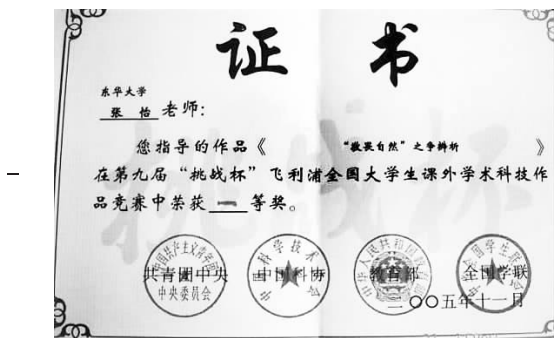 证 书
东华大学
张 怡 老师:
您指导的作品《 "敬畏自然"之争辨析 》
在第九届“挑战杯”飞利浦全国大学生课外学术科技作
品竞赛中荣获 一 等奖。
共青团中央 中国科协 教育部 全国学联
中央委员会
二〇〇五年十一月